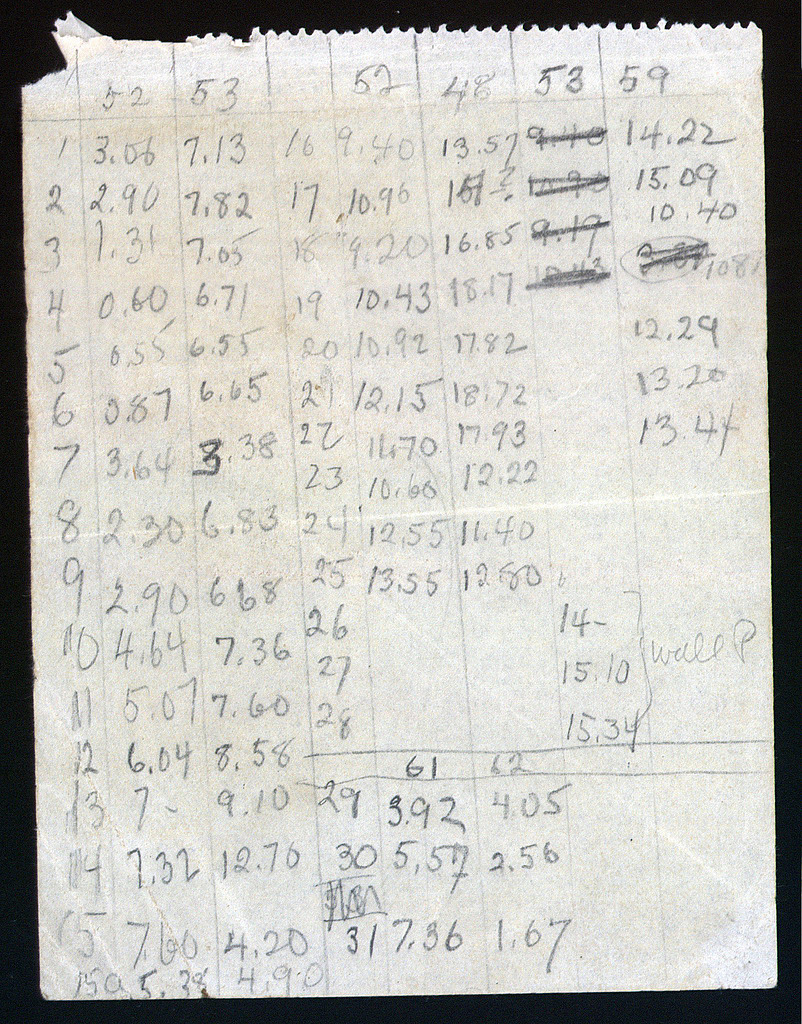 52 53 52 48 53 59
1 3.06 7.13 16 9.40 13.57 9.40 14.22
2 2.90 7.82 17 10.96 15.09
10.40
3 1.31 7.05 18 9.20 16.85 9.19 1081
4 0.60 6.71 19 10.43 18.17 10.43
5 0.55 6.55 20 10.92 17.82 12.29
6 0.87 6.65 21 12.15 18.72 13.20
7 3.64 3.38 22 11.70 17.93 13.44
23 10.60 12.22
8 2.30 6.83 24 12.55 11.40
9 2.90 6 68 25 13.55 12.80
10 4.64 7.36 26 14-
27 15.10 wall P
11 5.07 7.60 28 15.34
12 6.04 8.58 61 62
13 7- 9.10 29 3.92 4.05
14 7.32 12.76 30 5.57 2.56
15 7.60 4.20 31 7.36 1.67
15a 5.38 4.90